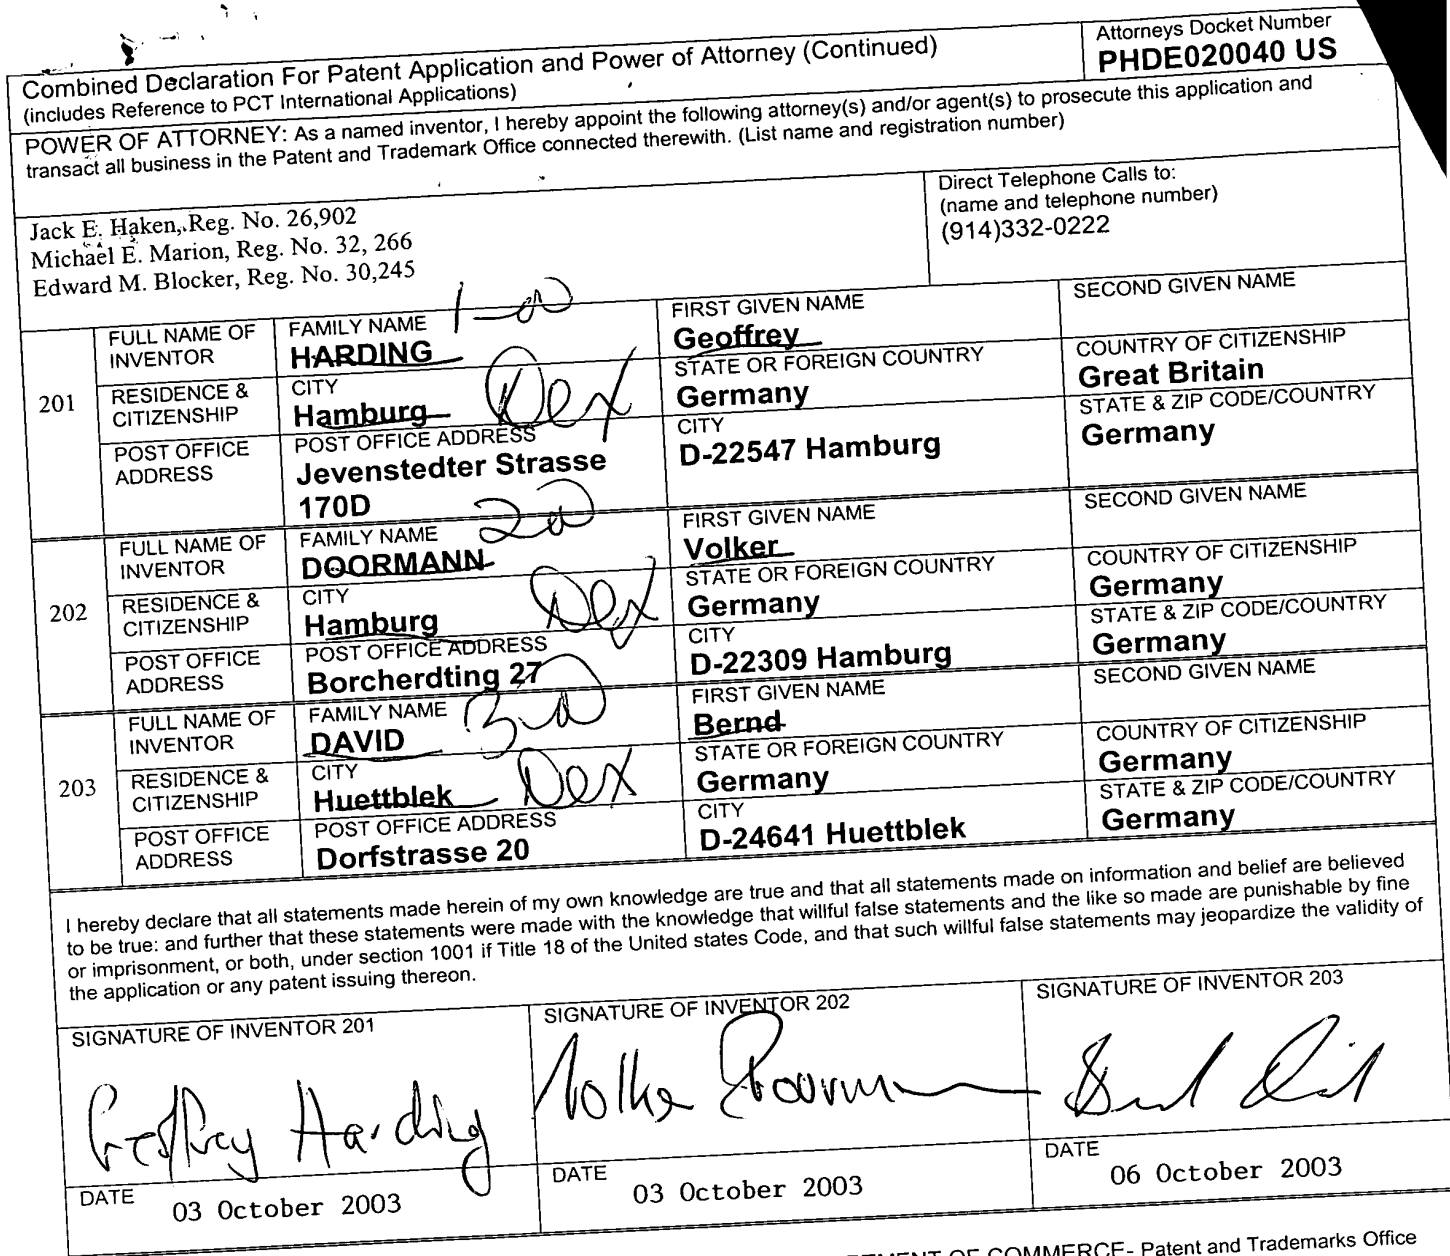 Combined Declaration For Patent Application and Power of Attorney (Continued)
(includes Reference to PCT International Applications)
Attorneys Docket Number
PHDE020040 US
POWER OF ATTORNEY: As a named inventor, I hereby appoint the following attorney(s) and/or agent(s) to prosecute this application and
transact all business in the Patent and Trademark Office connected therewith. (List name and registration number)
Jack E. Haken, Reg. No. 26,902
Michael E. Marion, Reg. No. 32, 266
Edward M. Blocker, Reg. No. 30,245
Direct Telephone Calls to:
(name and telephone number)
(914)332-0222
201
FULL NAME OF
INVENTOR
FAMILY NAME
HARDING
1-00
FIRST GIVEN NAME
Geoffrey
SECOND GIVEN NAME
RESIDENCE &
CITIZENSHIP
CITY
Hamburg
Dex
STATE OR FOREIGN COUNTRY
Germany
COUNTRY OF CITIZENSHIP
Great Britain
POST OFFICE
ADDRESS
POST OFFICE ADDRESS
Jevenstedter Strasse
170D
CITY
D-22547 Hamburg
STATE & ZIP CODE/COUNTRY
Germany
202
FULL NAME OF
INVENTOR
FAMILY NAME
DOORMANN
FIRST GIVEN NAME
Volker
SECOND GIVEN NAME
RESIDENCE &
CITIZENSHIP
CITY
Hamburg
Dex
STATE OR FOREIGN COUNTRY
Germany
COUNTRY OF CITIZENSHIP
Germany
POST OFFICE
ADDRESS
POST OFFICE ADDRESS
Borcherdting 27
CITY
D-22309 Hamburg
STATE & ZIP CODE/COUNTRY
Germany
203
FULL NAME OF
INVENTOR
FAMILY NAME
DAVID
FIRST GIVEN NAME
Bernd
SECOND GIVEN NAME
RESIDENCE &
CITIZENSHIP
CITY
Huettblek
Dex
STATE OR FOREIGN COUNTRY
Germany
COUNTRY OF CITIZENSHIP
Germany
POST OFFICE
ADDRESS
POST OFFICE ADDRESS
Dorfstrasse 20
CITY
D-24641 Huettblek
STATE & ZIP CODE/COUNTRY
Germany
I hereby declare that all statements made herein of my own knowledge are true and that all statements made on information and belief are believed
to be true: and further that these statements were made with the knowledge that willful false statements and the like so made are punishable by fine
or imprisonment, or both, under section 1001 if Title 18 of the United states Code, and that such willful false statements may jeopardize the validity of
the application or any patent issuing thereon.
SIGNATURE OF INVENTOR 201
Geoffrey Harding
SIGNATURE OF INVENTOR 202
Volker Doormann
SIGNATURE OF INVENTOR 203
Bernd David
DATE
03 October 2003
DATE
03 October 2003
DATE
06 October 2003
OF COMMERCE- Patent and Trademarks Office